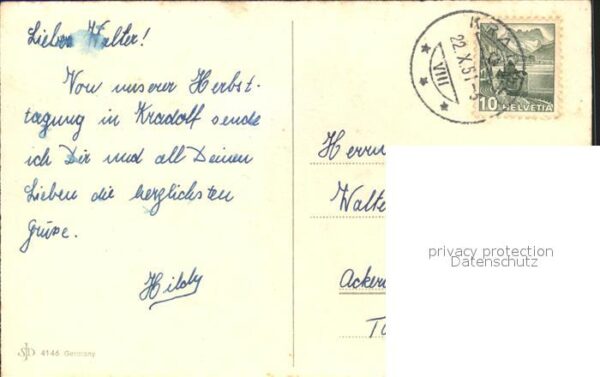 Lieber Walter!
Von unserer Herbst-
tagung in Kradolf sende
ich Dir und all Deinen
Lieben die herzlichsten
Grüsse.
Hildy
SJD 4146 Germany
KRA
22.X.51-5
VIII
10 HELVETIA
Herrn
Walte
Acker
privacy protection
Datenschutz